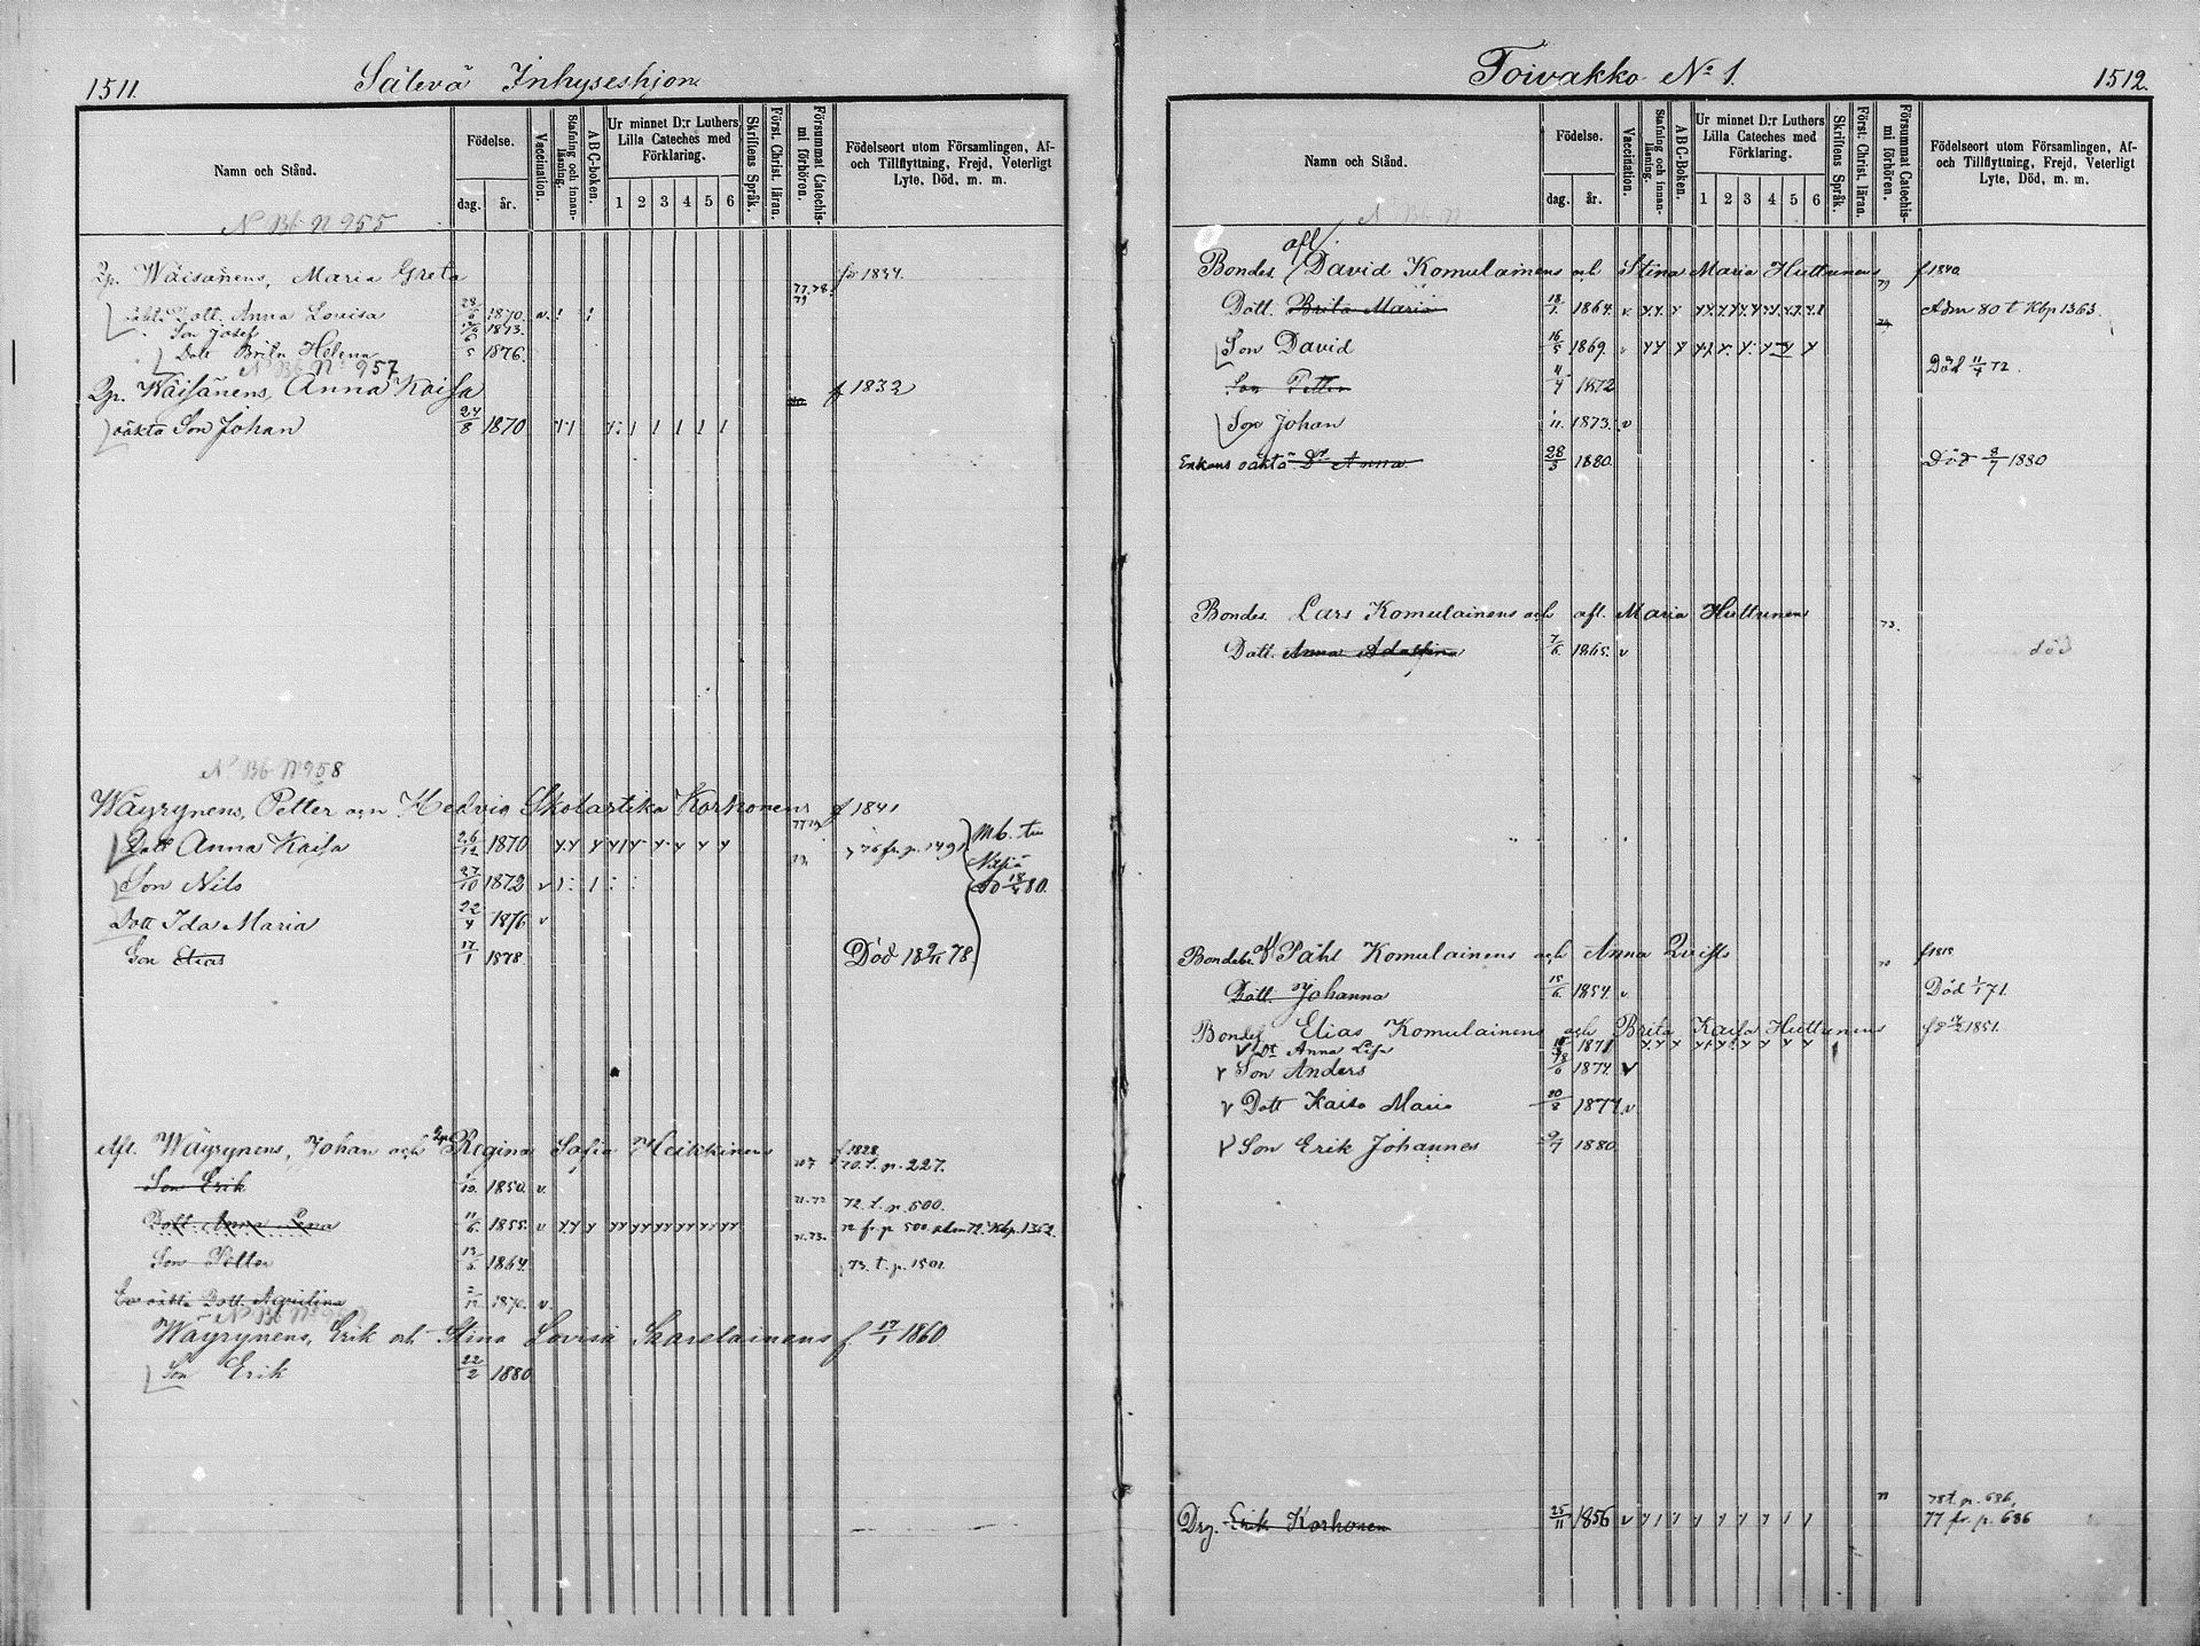 1511.
Sälevä Inhyseshjon
Namn och Stånd.
Födelse.
dag.
år.
Vaccination.
Stafning och innan-
läsning.
ABC-boken.
Ur minnet D:r Luthers
Lilla Cateches med
Förklaring.
1 2 3 4 5 6
Skriftens Språk.
Först. Christ. läran.
Försummat Catechis-
mi förhören.
Födelseort utom Församlingen, Af-
och Tillflyttning, Frejd, Veterligt
Lyte, Död, m. m.
N Bb N 955
Qp. Wäisänens, Maria Greta 77.78. 79
Dott. Anna Lovisa 1870
Son Josef 1873.
Dott Brita Helena 5 1876.
N Bb No 957
Qp. Wäisänens, Anna Kaisa f 1832
oäkta Son Johan 24/8 1870
N Bb No 958
Wäyrynens, Petter och Hedvig Skolastika Korhonens f 1841
Dott Anna Kaisa 26/12 1870 76 fr. p. 1491. Mb. t.
Son Nils 27/10 1872 v
Dott Ida Maria 22/4 1876 v
Son Elias 17/1 1878. Död 18 78.
Afl. Wäyrynens, Johan och Regina Sofia Heikkinens f. 1828. 70. t. p. 227.
Son Erik 1850. v. 72. t. p. 500.
Dott. Anna Lena 11/6 1855. v 72 fr. p 500 adm 72. Kbp. 1352.
Son Petter 1864. 73. t. p. 1501.
oäkta Dott. Aqvilina 1870. v.
Wäyrynens, Erik och Stina Lovisa Karelainens f. 17/1 1860
Son Erik 22/2 1880
Toivakko No 1.
1512.
Namn och Stånd.
Födelse.
dag.
år.
Vaccination.
Stafning och innan-
läsning.
ABC-boken.
Ur minnet D:r Luthers
Lilla Cateches med
Förklaring.
1 2 3 4 5 6
Skriftens Språk.
Först. Christ. läran.
Försummat Catechis-
mi förhören.
Födelseort utom Församlingen, Af-
och Tillflyttning, Frejd, Veterligt
Lyte, Död, m. m.
N Bb N
afl.
Bondes. David Komulainens och Stina Maria Huttunens 79 f 1840.
Dott. Brita Maria 18/1. 1864. v Adm 80 t Kbp 1363.
Son David 16/5 1869.
Son Petter 4/4 1872 Död 11/4 72.
Son Johan 11. 1873. v
Enkans oäkta Dr Anna 28/3 1880. Död 8/7 1880
Bondes. Lars Komulainens och afl. Maria Huttunens 73.
Dott. Anna 7/6. 1865. v död
Påhl Komulainens och Anna f 1815
Dott. Johanna 15/6. 1854. v Död 1/1 71.
Bondes Elias Komulainens och Brita Kaisa Huttunens 1851.
Dt Anna Lisa 1871
Son Anders 1874. v
Dott Kaisa Maria 20/8 1877 v
Son Erik Johannes 9/7 1880
Drg. Erik Korhonen 25/11 1856 v 75 t. p. 686,
77 fr. p. 686